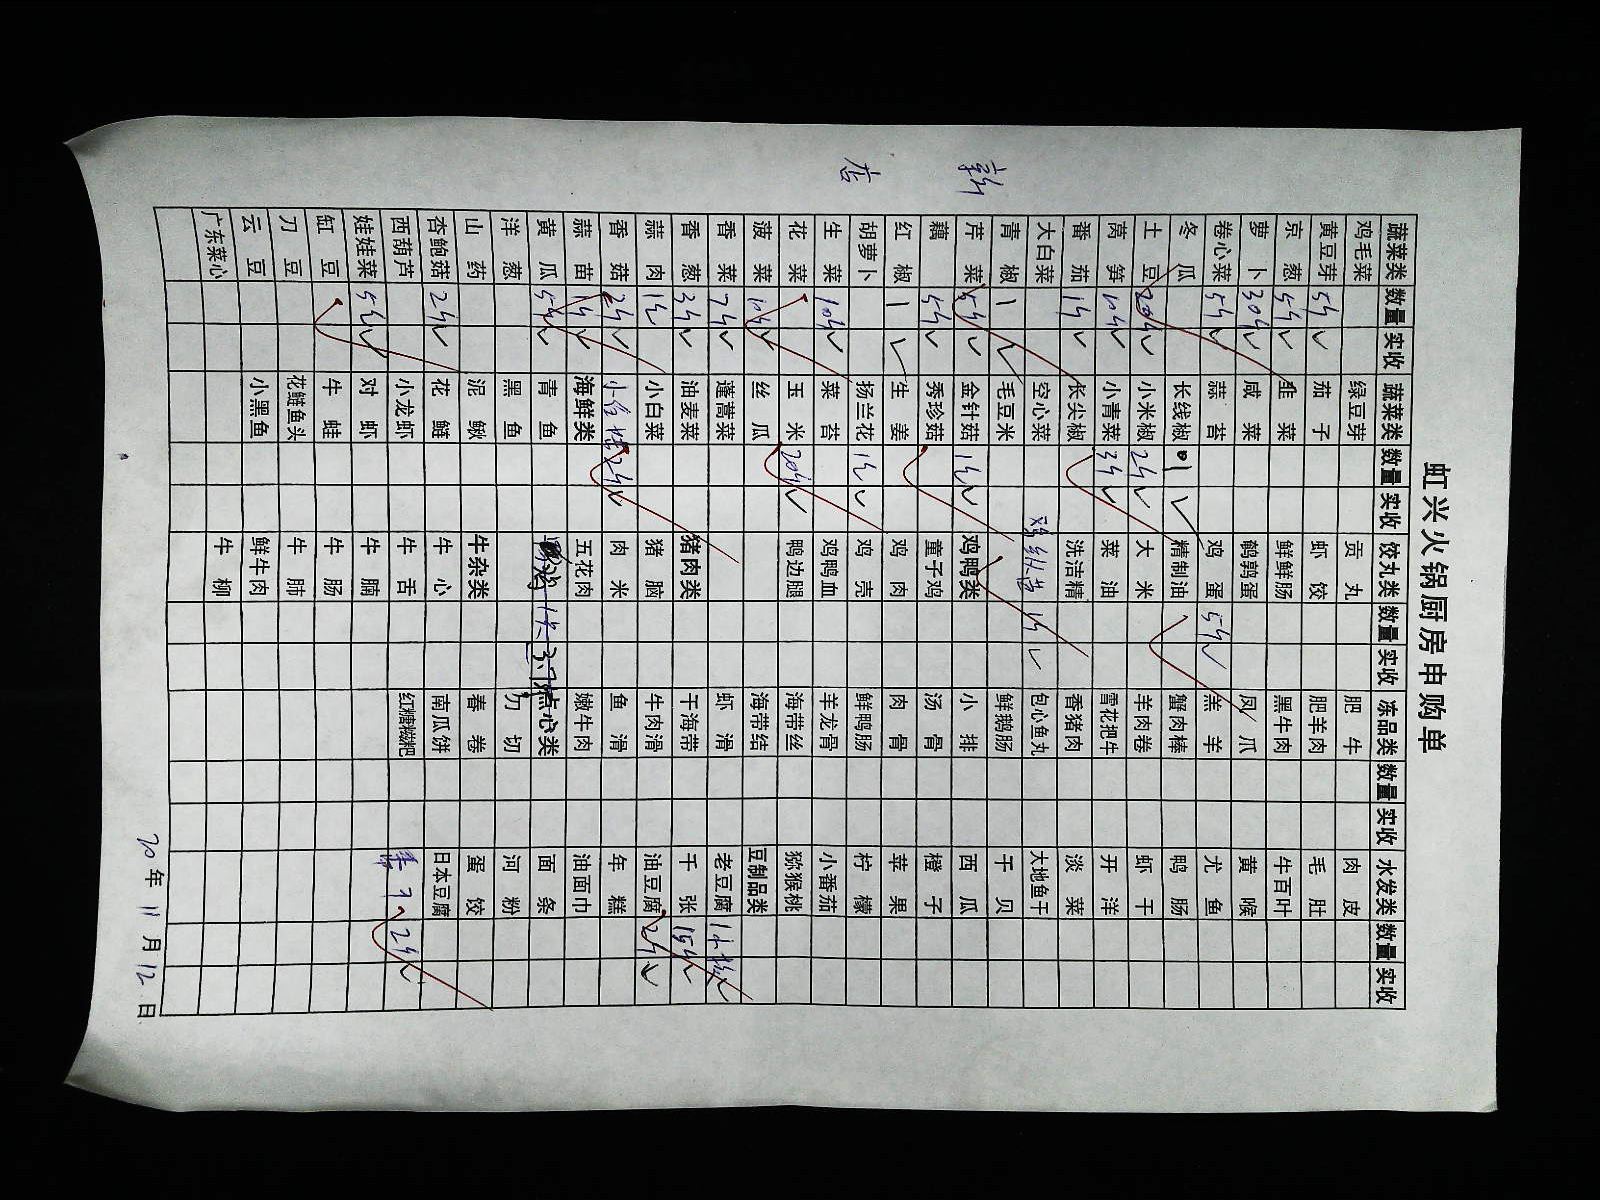 虹兴火锅厨房申购单
蔬菜类 数量 实收 蔬菜类 数量 实收 饺丸类 数量 实收 冻品类 数量 实收 水发类 数量 实收
鸡毛菜 绿豆芽 贡丸 肥牛 肉皮
黄豆芽 5斤 ✓ 茄子 虾饺 肥羊肉 毛肚
京葱 5斤 ✓ 韭菜 鲜鲜肠 黑牛肉 牛百叶
萝卜 30斤 咸菜 鹌鹑蛋 凤爪 黄喉
卷心菜 5斤 ✓ 蒜苔 鸡蛋 5斤 ✓ 羔羊 尤鱼
冬瓜 长线椒 1 ✓ 精制油 蟹肉棒 鸭肠
土豆 20斤 ✓ 小米椒 2斤 ✓ 大米 羊肉卷 虾干
莴笋 10斤 ✓ 小青菜 3斤 ✓ 菜油 雪花把牛 开洋
番茄 1斤 ✓ 长尖椒 洗洁精 香猪肉 淡菜
大白菜 空心菜 1斤 ✓ 包心鱼丸 大地鱼干
青椒 1 ✓ 毛豆米 鲜鹅肠 干贝
芹菜 5斤 ✓ 金针菇 1斤 ✓ 鸡鸭类 小排 西瓜
藕 5斤 ✓ 秀珍菇 童子鸡 汤骨 橙子
红椒 1 ✓ 生姜 鸡肉 肉骨 苹果
胡萝卜 扬兰花 1斤 ✓ 鸡壳 鲜鸭肠 柠檬
生菜 10斤 ✓ 菜苔 鸡鸭血 羊龙骨 小番茄
花菜 玉米 20斤 ✓ 鸭边腿 海带丝 猕猴桃
菠菜 10斤 ✓ 丝瓜 海带结 豆制品类
香菜 7斤 ✓ 蓬蒿菜 虾滑 老豆腐 ✓
香葱 3斤 ✓ 油麦菜 猪肉类 干海带 千张 15斤 ✓
蒜肉 1斤 小白菜 猪脑 牛肉滑 油豆腐 2斤 ✓
香菇 2斤 ✓ 2斤 ✓ 肉米 鱼滑 年糕
蒜苗 1斤 ✓ 海鲜类 五花肉 嫩牛肉 油面巾
黄瓜 5斤 ✓ 青鱼 点心类 面条
洋葱 黑鱼 刀切 河粉
山药 泥鳅 牛杂类 春卷 蛋饺
杏鲍菇 2斤 ✓ 花鲢 牛心 南瓜饼 日本豆腐
西葫芦 小龙虾 牛舌 红糖糍粑 2斤 ✓
娃娃菜 5斤 ✓ 对虾 牛腩
缸豆 牛蛙 牛肠
刀豆 花鲢鱼头 牛肺
云豆 小黑鱼 鲜牛肉
广东菜心 牛柳
新店
20年11月12日